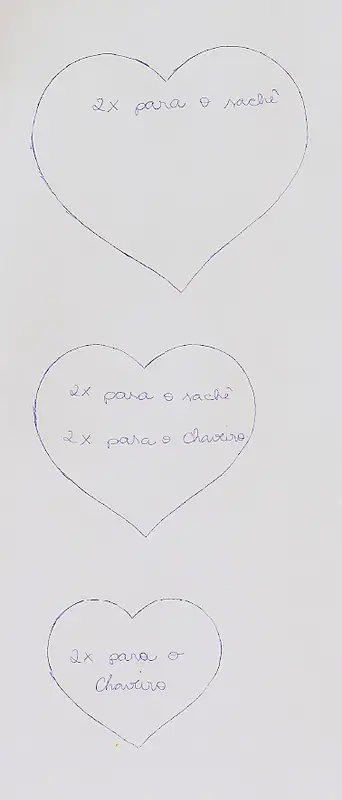 2x para o sachê
2x para o sachê
2x para o chaveiro
2x para o
chaveiro